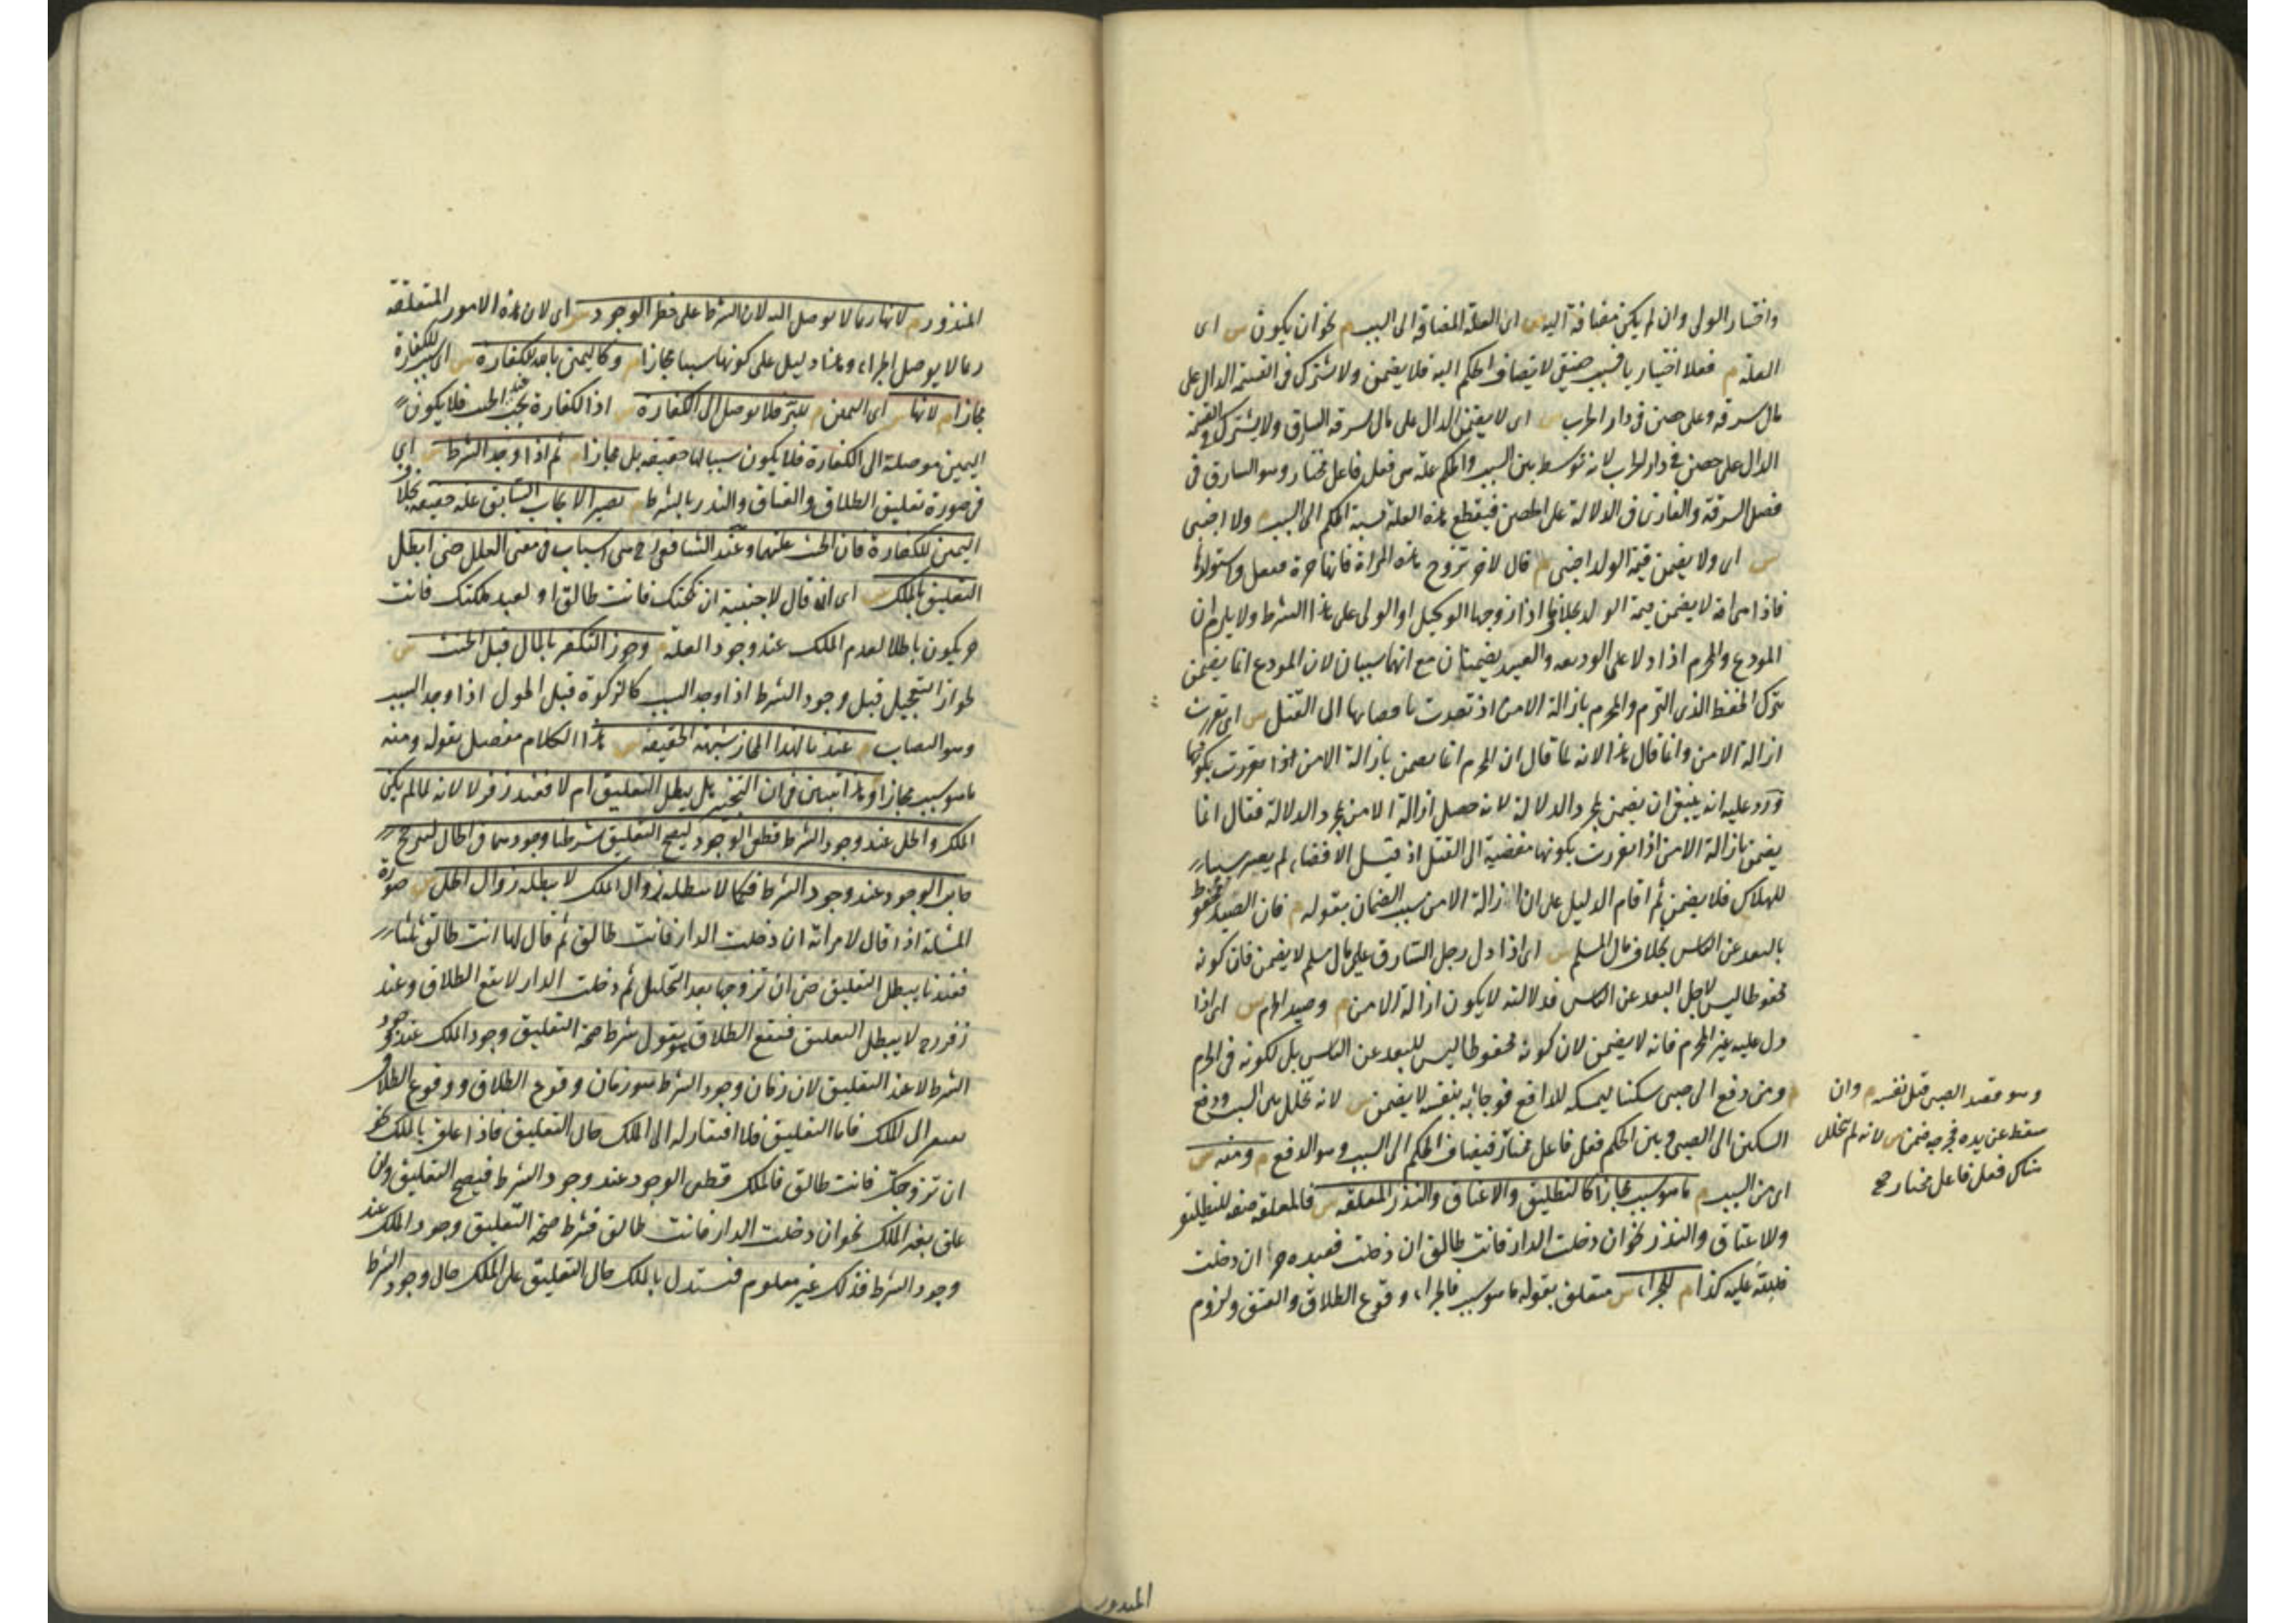 واختيار الولي وان لم يكن مضافة اليه س اى العلة المضافة الى السبب م نحو ان يكون س اى
العلة م فعلا اختياريا فسبب حقيقى لا يضاف الحكم اليه فلا يضمن ولا يشترك فى الغنيمة الدال على
مال سرقه وعلى حصن فى دار الحرب س اى لا يضمن الدال على مال سرقه السارق ولا يشترك فى الغنيمة
الدال على حصن فى دار الحرب لانه توسط بين السبب والحكم علة هى فعل فاعل مختار وهو السارق فى
فصل السرقة والغازى فى الدلالة على الحصن فيقطع هذه العلة نسبة الحكم الى السبب م ولا اجنبى
س اى ولا يضمن قيمة الولد اجنبى م قال لاخر تزوج هذه المراة فانها حرة ففعل واستولدها
فاذا هى امة لا يضمن قيمة الولد بخلاف ما اذا زوجها الوكيل او الولى على هذا الشرط ولا يلزم ان
المودع والمحرم اذا دلا على الوديعة والصيد يضمنان مع انهما سببان لان المودع انما يضمن
بترك الحفظ الذى التزم والمحرم بازالة الامن اذ تقررت بافضائها الى القتل س اى تقررت
ازالة الامن وانما قال هذا لانه لما قال ان المحرم انما يضمن بازالة الامن اذا تقررت بكونها
ورد عليه انه ينبغى ان يضمن بمجرد الدلالة لانه حصل ازالة الامن بمجرد الدلالة فقال انما
يضمن بازالة الامن اذا تقررت بكونها مفضية الى القتل اذ قبل الافضاء لم يصر سببا
للهلاك فلا يضمن ثم اقام الدليل على ان ازالة الامن سبب الضمان بقوله م فان الصيد محفوظ
بالبعد عن الناس بخلاف مال المسلم س اى اذا دل رجل السارق على مال مسلم لا يضمن فان كونه
محفوظا ليس لاجل البعد عن الناس فدلالته لا يكون ازالة الامن م وصيد الحرم س اى اذا
دل عليه غير المحرم فانه لا يضمن لان كونه محفوظا ليس للبعد عن الناس بل لكونه فى الحرم
م ومن دفع الى صبى سكينا ليمسكه للدافع فوجأ به نفسه لا يضمن س لانه تخلل بين السبب ودفع
السكين الى الصبى وبين الحكم فعل فاعل مختار فيضاف الحكم الى السبب وهو الدفع م ومنه س
اى من السبب م ما هو سبب مجازا كالتطليق والاعتاق والنذر المعلقة س فالمعلقة صفة للتطليق
والاعتاق والنذر نحو ان دخلت الدار فانت طالق ان دخلت فعبده حر ان دخلت
فلله عليه كذا م للجزاء س متعلق بقوله ما هو سبب فالجزاء وقوع الطلاق والعتق ولزوم
وهو قصد الصبى قتل نفسه م وان
سقط عن يده فجرحه ضمن س لانه لم يتخلل
هناك فعل فاعل مختار صح
المنذور
المنذور م لانها ربما لا يوصل اليه لان الشرط على خطر الوجود س اى لان هذه الامور المتعلقة
ربما لا يوصل الجزاء وهذا دليل على كونها سببا مجازا م وكاليمين بالله للكفارة س اى سبب للكفارة
مجازا م لانها س اى اليمين م للبر فلا يوصل الى الكفارة س اذ الكفارة تجب عند الحنث فلا يكون
اليمين موصلة الى الكفارة فلا يكون سببا لها حقيقة بل مجازا م ثم اذا وجد الشرط س اى
فى صورة تعليق الطلاق والعتاق والنذر بالشرط م يصير الايجاب السابق علة حقيقة بخلاف
اليمين للكفارة فان الحنث علتها وعند الشافعى رح هى اسباب فى معنى العلل حتى ابطل
التعليق بالملك س اى ان قال لاجنبية ان نكحتك فانت طالق او لعبد ملكتك فانت
حر يكون باطلا لعدم الملك عند وجود العلة م وجوز التكفير بالمال قبل الحنث س
لجواز التعجيل قبل وجود الشرط اذا وجد السبب كالزكوة قبل الحول اذا وجد السبب
وهو النصاب م عندنا لهذا المجاز شبهة الحقيقة س هذا الكلام متصل بقوله ومنه
ما هو سبب مجازا وهذا يتبين فى ان التنجيز هل يبطل التعليق ام لا فعند زفر لا لانه لما لم يكن
الملك والحل عند وجود الشرط قطعى الوجود ليصح التعليق شرطنا وجودهما فى الحال ليترجح
جانب الوجود عند وجود الشرط فكما لا يبطله زوال الملك لا يبطله زوال الحل س صورة
المسئلة اذا قال لامراته ان دخلت الدار فانت طالق ثم قال لها انت طالق ثلثا
فعندنا يبطل التعليق حتى ان تزوجها بعد التحليل ثم دخلت الدار لا يقع الطلاق وعند
زفر رح لا يبطل التعليق فيقع الطلاق هو يقول شرط صحة التعليق وجود الملك عند وجود
الشرط لا عند التعليق لان زمان وجود الشرط هو زمان وقوع الطلاق ووقوع الطلاق
يفتقر الى الملك فاما التعليق فلا افتقار له الى الملك حال التعليق فاذا علق بالملك نحو
ان تزوجتك فانت طالق فالملك قطعى الوجود عند وجود الشرط فيصح التعليق وان
علق بغير الملك نحو ان دخلت الدار فانت طالق فشرط صحة التعليق وجود الملك عند
وجود الشرط فذلك غير معلوم فنستدل بالملك حال التعليق على الملك حال وجود الشرط